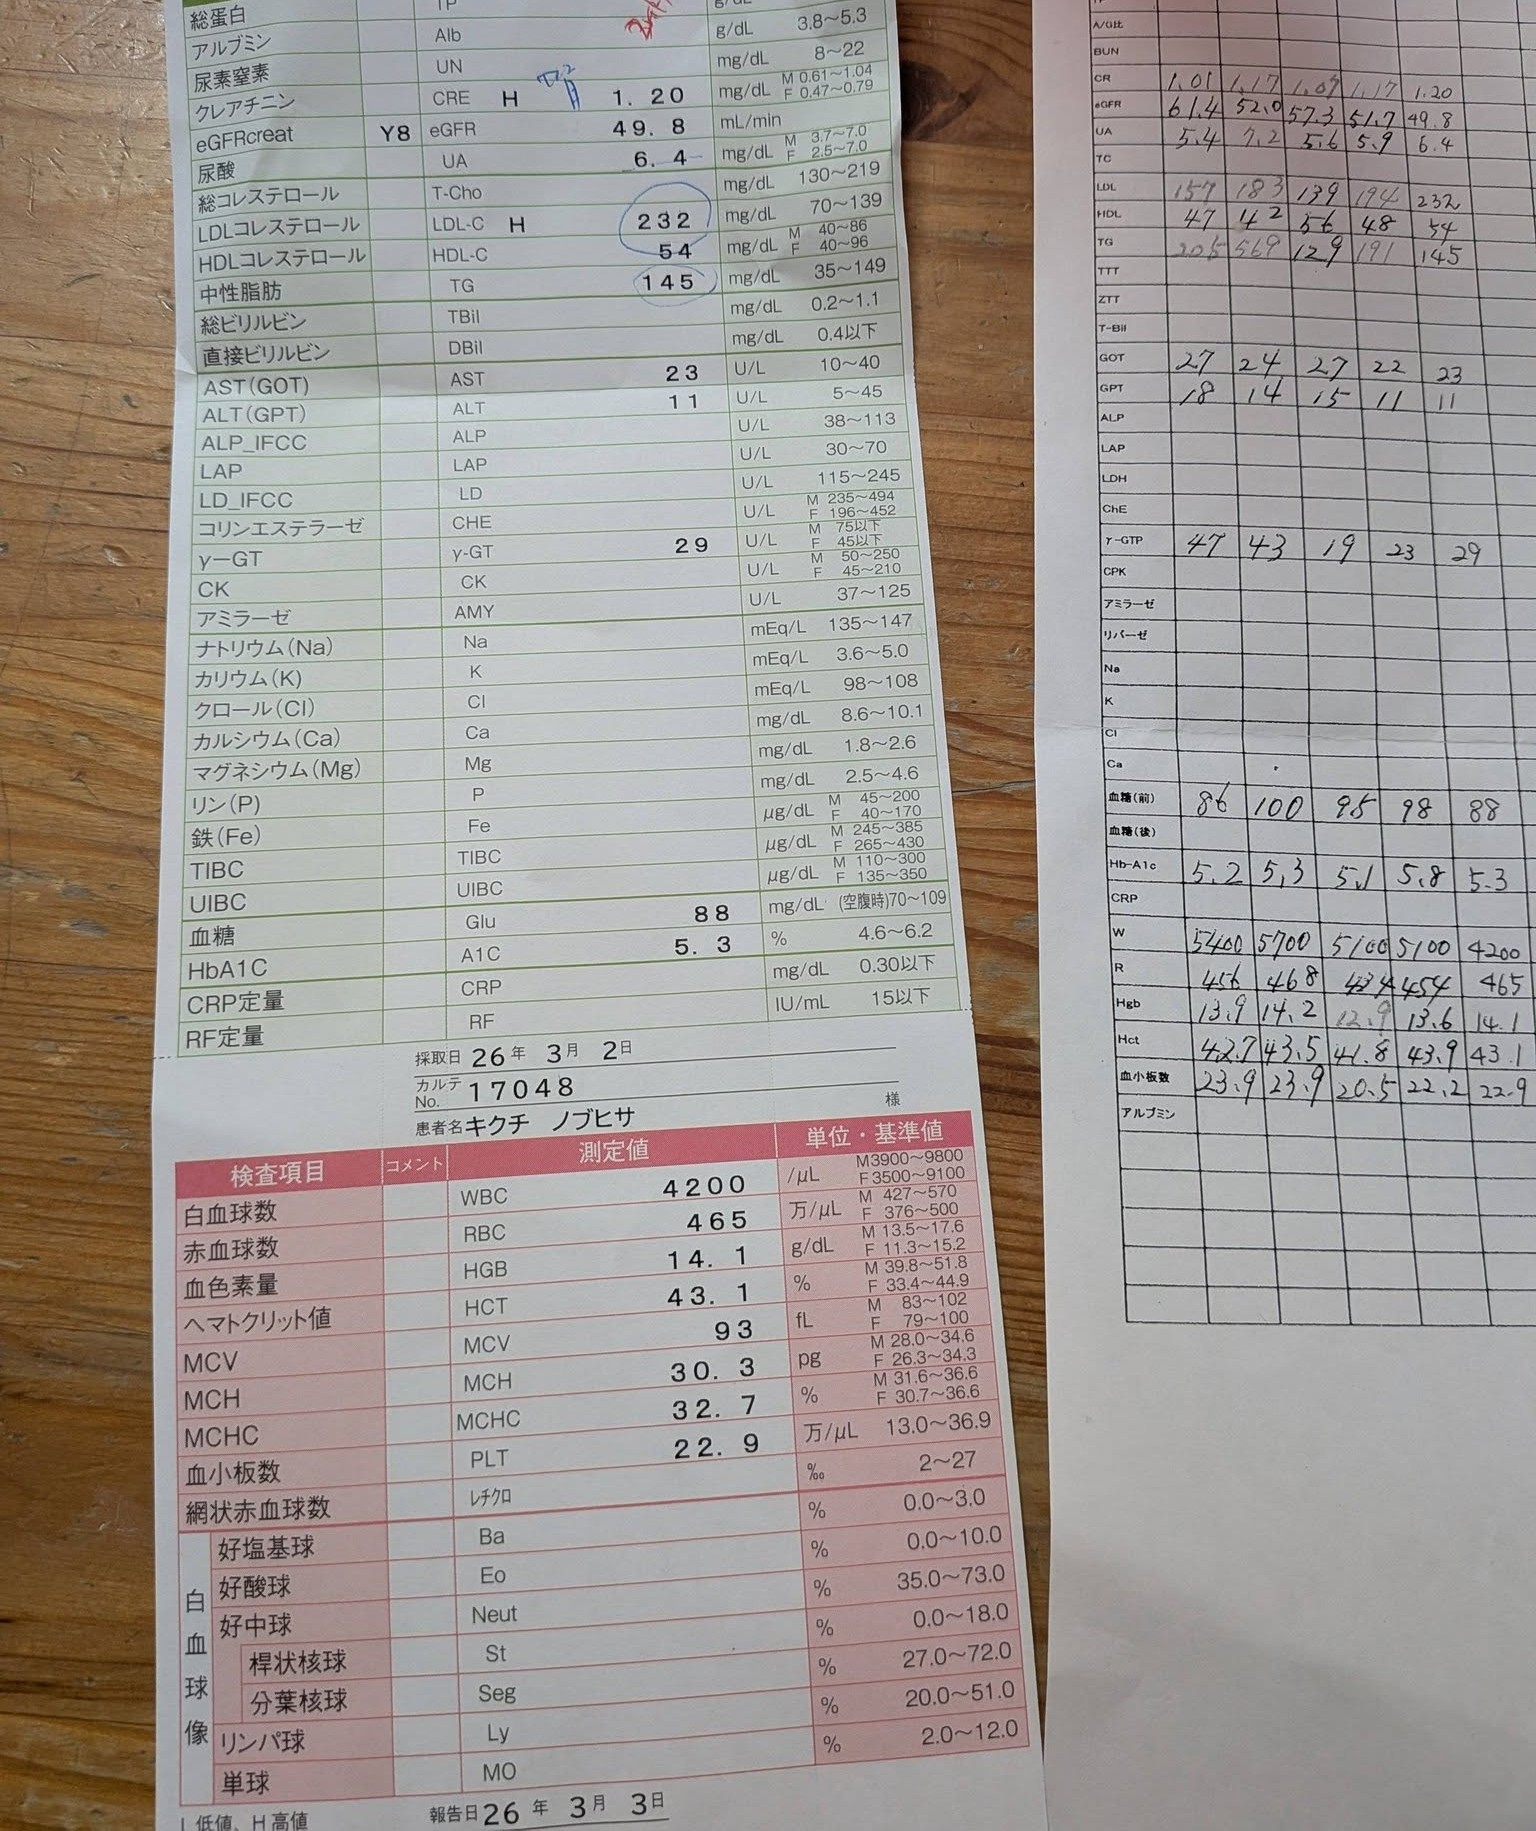 総蛋白 TP g/dL
アルブミン Alb g/dL 3.8～5.3
尿素窒素 UN mg/dL 8～22
クレアチニン CRE H 1.20 mg/dL M 0.61～1.04 F 0.47～0.79
eGFRcreat Y8 eGFR 49.8 mL/min
尿酸 UA 6.4 mg/dL M 3.7～7.0 F 2.5～7.0
総コレステロール T-Cho mg/dL 130～219
LDLコレステロール LDL-C H 232 mg/dL 70～139
HDLコレステロール HDL-C 54 mg/dL M 40～86 F 40～96
中性脂肪 TG 145 mg/dL 35～149
総ビリルビン TBil mg/dL 0.2～1.1
直接ビリルビン DBil mg/dL 0.4以下
AST(GOT) AST 23 U/L 10～40
ALT(GPT) ALT 11 U/L 5～45
ALP_IFCC ALP U/L 38～113
LAP LAP U/L 30～70
LD_IFCC LD U/L 115～245
コリンエステラーゼ CHE U/L M 235～494 F 196～452
γ-GT γ-GT 29 U/L M 75以下 F 45以下
CK CK U/L M 50～250 F 45～210
アミラーゼ AMY U/L 37～125
ナトリウム(Na) Na mEq/L 135～147
カリウム(K) K mEq/L 3.6～5.0
クロール(Cl) Cl mEq/L 98～108
カルシウム(Ca) Ca mg/dL 8.6～10.1
マグネシウム(Mg) Mg mg/dL 1.8～2.6
リン(P) P mg/dL 2.5～4.6
鉄(Fe) Fe μg/dL M 45～200 F 40～170
TIBC TIBC μg/dL M 245～385 F 265～430
UIBC UIBC μg/dL M 110～300 F 135～350
血糖 Glu 88 mg/dL (空腹時)70～109
HbA1C A1C 5.3 % 4.6～6.2
CRP定量 CRP mg/dL 0.30以下
RF定量 RF IU/mL 15以下
採取日 26年 3月 2日
カルテNo. 17048
患者名 キクチ ノブヒサ 様
検査項目 コメント 測定値 単位・基準値
白血球数 WBC 4200 /μL M3900～9800 F3500～9100
赤血球数 RBC 465 万/μL M 427～570 F 376～500
血色素量 HGB 14.1 g/dL M 13.5～17.6 F 11.3～15.2
ヘマトクリット値 HCT 43.1 % M 39.8～51.8 F 33.4～44.9
MCV MCV 93 fL M 83～102 F 79～100
MCH MCH 30.3 pg M 28.0～34.6 F 26.3～34.3
MCHC MCHC 32.7 % M 31.6～36.6 F 30.7～36.6
血小板数 PLT 22.9 万/μL 13.0～36.9
網状赤血球数 レチクロ ‰ 2～27
白血球像
好塩基球 Ba % 0.0～3.0
好酸球 Eo % 0.0～10.0
好中球 Neut % 35.0～73.0
桿状核球 St % 0.0～18.0
分葉核球 Seg % 27.0～72.0
リンパ球 Ly % 20.0～51.0
単球 MO % 2.0～12.0
L 低値、H 高値 報告日 26年 3月 3日
A/G比
BUN
CR 1.01 1.17 1.07 1.17 1.20
eGFR 61.4 52.0 57.3 51.7 49.8
UA 5.4 7.2 5.6 5.9 6.4
TC
LDL 157 183 139 194 232
HDL 47 42 56 48 54
TG 205 569 129 191 145
TTT
ZTT
T-Bil
GOT 27 24 27 22 23
GPT 18 14 15 11 11
ALP
LAP
LDH
ChE
γ-GTP 47 43 19 23 29
CPK
アミラーゼ
リパーゼ
Na
K
Cl
Ca
血糖(前) 86 100 95 98 88
血糖(後)
Hb-A1c 5.2 5.3 5.1 5.8 5.3
CRP
W 5400 5700 5100 5100 4200
R 456 468 434 454 465
Hgb 13.9 14.2 12.9 13.6 14.1
Hct 42.7 43.5 41.8 43.9 43.1
血小板数 23.9 23.9 20.5 22.2 22.9
アルブミン